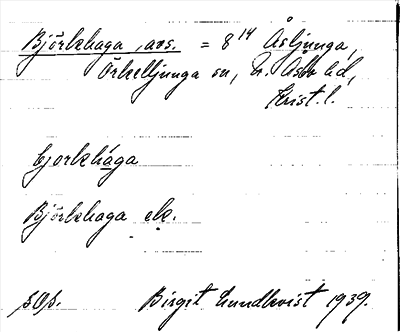 Björkhaga, avs. = 8¹⁴ Åsljunga,
Örkelljunga sn, N. Åsbo hd,
Krist. l.
bjorkhaga
Björkhaga ek.
sOp. Birgit Lundkvist 1939.